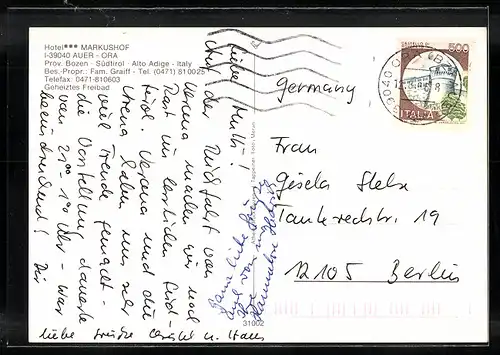 Hotel*** MARKUSHOF
I-39040 AUER - ORA
Prov. Bozen · Südtirol · Alto Adige - Italy
Bes.-Propr.: Fam. Graiff - Tel. (0471) 810025
Telefax: 0471-810603
Geheiztes Freibad
Liebe Mutti!
Auf der Rückfahrt von
Verona machen wir noch
Rast im herrlichen Süd-
tirol. Verona und die
Arena haben uns sehr
viel Freude gemacht.
die Vorstellung dauerte
von 21⁰⁰-1⁰⁰ Uhr - war
beeindruckend! Dir
liebe Grüße und Hans
Ganz liebe Grüße
auch von
Hannelore
31002
500
ITALIA
39040
Germany
Frau
Gisela Stelze
Tankredstr. 19
12105 Berlin